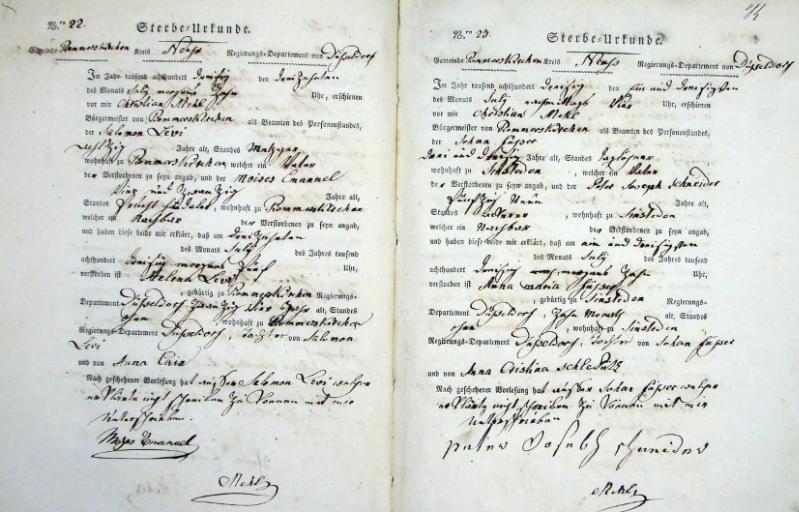 N.ro 22. Sterbe-Urkunde.
Gemeinde Rommerskirchen Kreis Neuss Regierungs-Departement von Düsseldorf
Im Jahr tausend achthundert dreißig den dreizehnten
des Monats July morgens Zehn Uhr, erschienen
vor mir Christian Mekl
Bürgermeister von Rommerskirchen als Beamten des Personenstandes,
der Salomon Levi
Jahre alt, Standes Metzger
wohnhaft zu Rommerskirchen welcher ein Vater
der Verstorbenen zu seyn angab, und der Moises Emanuel
vier und zwanzig Jahre alt,
Standes Fruchthändler, wohnhaft zu Rommerskirchen
welcher ein Nachbar der Verstorbenen zu seyn angab,
und haben diese beide mir erklärt, daß am dreizehnten
des Monats July des Jahres tausend
achthundert dreißig morgens fünf Uhr,
verstorben ist Helena Levi
, gebürtig zu Rommerskirchen Regierungs-
Departement Düsseldorf alt, Standes
ohne , wohnhaft zu Rommerskirchen
Regierungs-Departement Düsseldorf, Tochter von Salomon
Levi
und von Anna
Nach geschehener Vorlesung hat außer Salomon Levi welcher
erklärte nicht schreiben zu können mit mir
unterschrieben.
Moyses Emanuel
Mekl
N.ro 23. Sterbe-Urkunde.
Gemeinde Rommerskirchen Kreis Neuss Regierungs-Departement von Düsseldorf
Im Jahr tausend achthundert dreißig den ein und dreißigsten
des Monats July nachmittags vier Uhr, erschienen
vor mir Christian Mekl
Bürgermeister von Rommerskirchen als Beamten des Personenstandes,
der Johan
drei und dreißig Jahre alt, Standes Taglöhner
wohnhaft zu Sinsteden , welcher ein Vater
der Verstorbenen zu seyn angab, und der Peter Joseph Schneider
fünfzig neun Jahre alt,
Standes Ackerer , wohnhaft zu Sinsteden
welcher ein Nachbar der Verstorbenen zu seyn angab,
und haben diese beide mir erklärt, daß am ein und dreißigsten
des Monats July des Jahres tausend
achthundert dreißig morgens Zehn Uhr,
verstorben ist Anna Maria
, gebürtig zu Sinsteden Regierungs-
Departement Düsseldorf, Zehn Monath alt, Standes
ohne , wohnhaft zu Sinsteden
Regierungs-Departement Düsseldorf, Tochter von Johan
und von Anna Cristina
Nach geschehener Vorlesung hat außer Johan welcher
erklärte nicht schreiben zu können mit mir
unterschrieben
Peter Joseph Schneider
Mekl